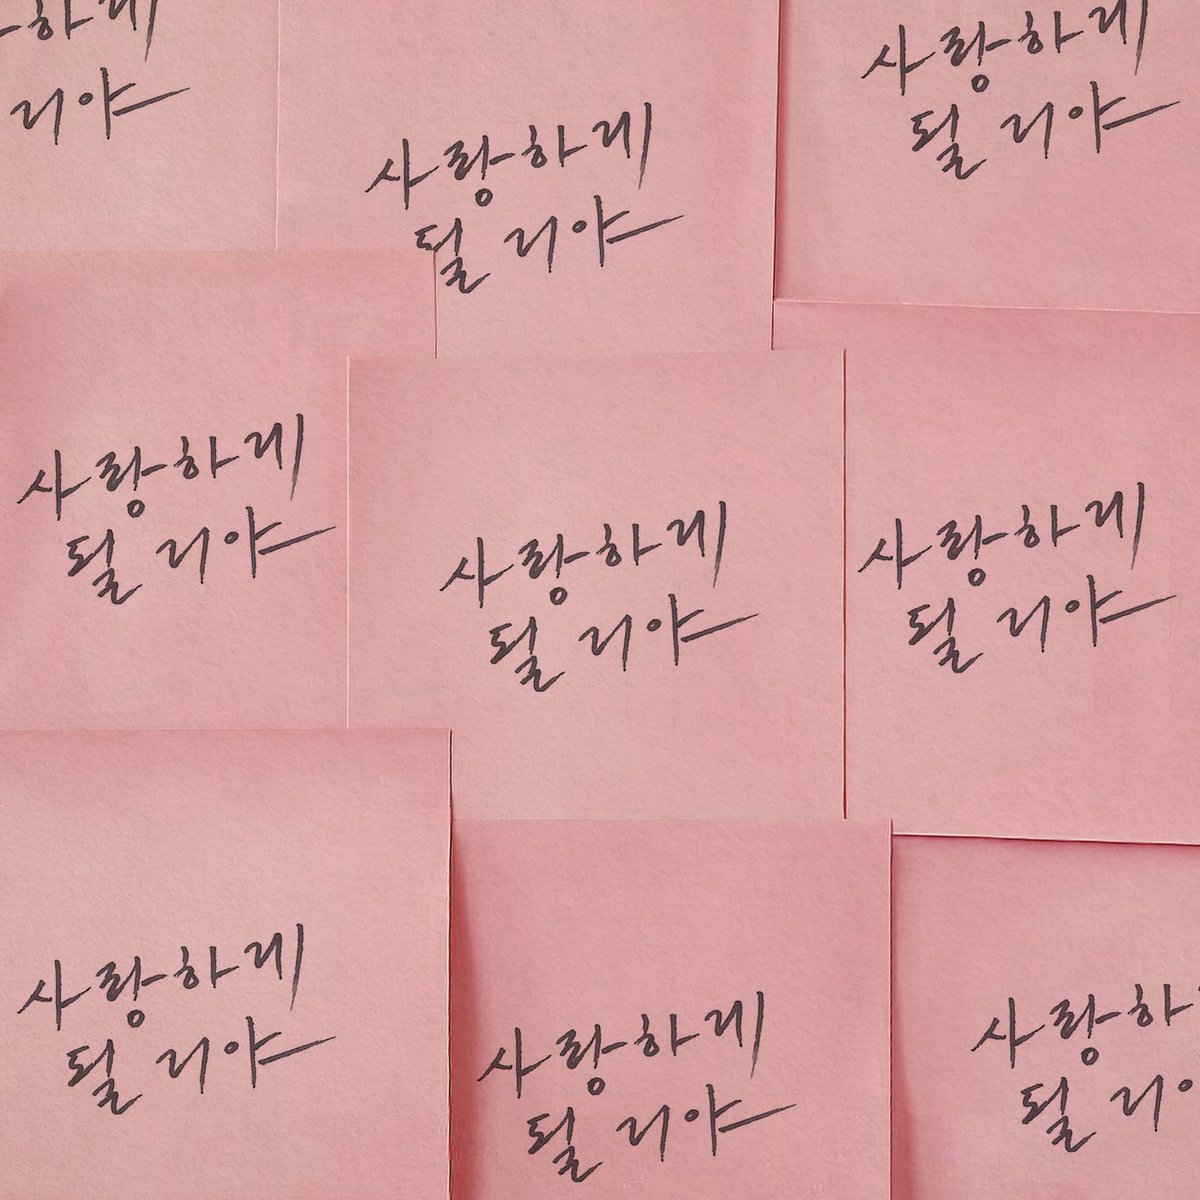 하게
거야
사랑하게
될 거야
사랑하게
될 거야
사랑하게
될 거야
사랑하게
될 거야
사랑하게
될 거야
사랑하게
될 거야
사랑하게
될 거야
사랑하
될 거